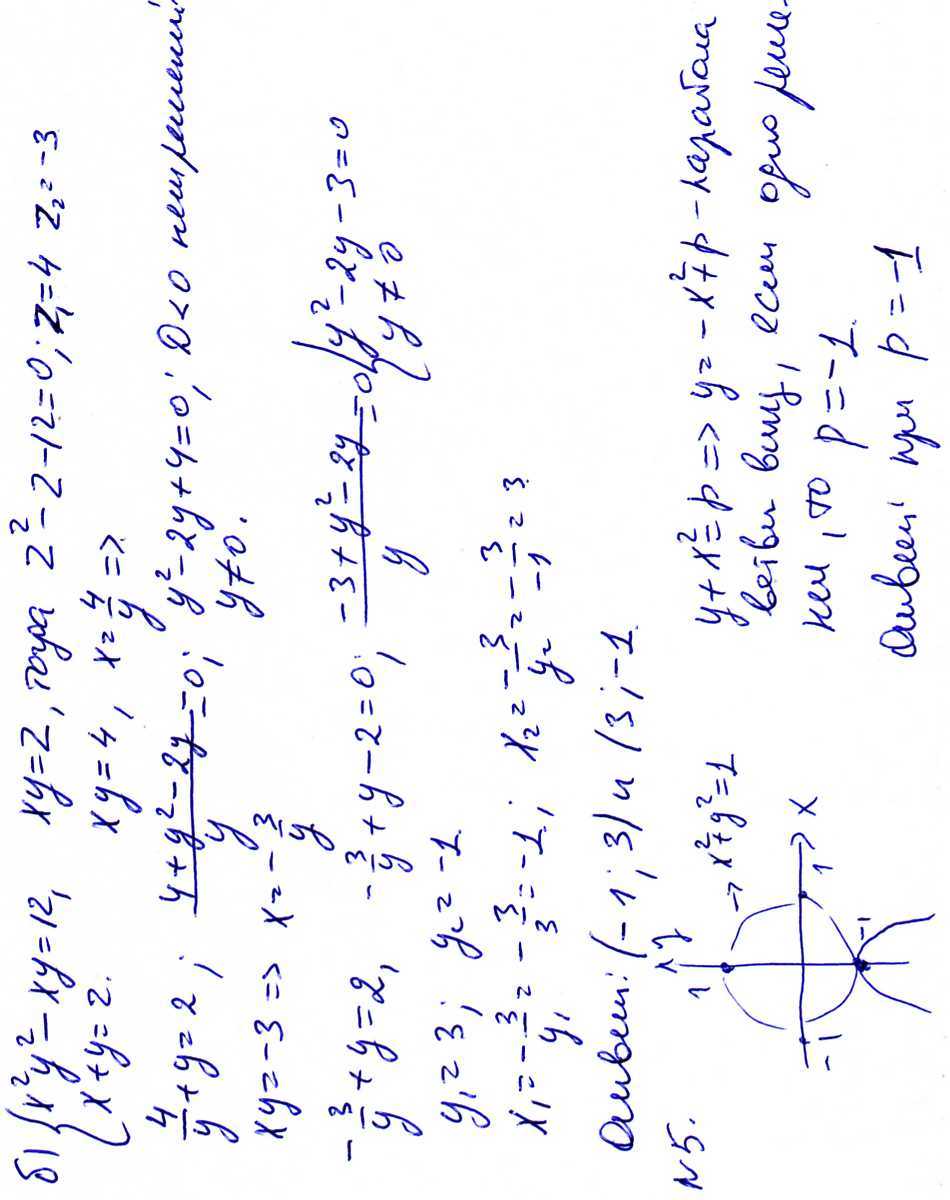 б) { x²y² - xy = 12, xy = z, тогда z² - z - 12 = 0; z₁ = 4 z₂ = -3
x + y = 2. xy = 4, x = 4/y =>
4/y + y = 2; (4 + y² - 2y)/y = 0; y² - 2y + 4 = 0; D < 0 нет решений
y ≠ 0.
xy = -3 => x = -3/y
-3/y + y = 2, -3/y + y - 2 = 0; (-3 + y² - 2y)/y = 0 { y² - 2y - 3 = 0
y ≠ 0
y₁ = 3; y₂ = -1
x₁ = -3/y₁ = -3/3 = -1; x₂ = -3/y₂ = -3/-1 = 3
Ответ: (-1; 3) и (3; -1
№5.
y
1
→ x² + y² = 1
-1
1
x
-1
y + x² = p => y = -x² + p - парабола
ветви вниз, если одно реше-
ние, то p = -1
Ответ: при p = -1